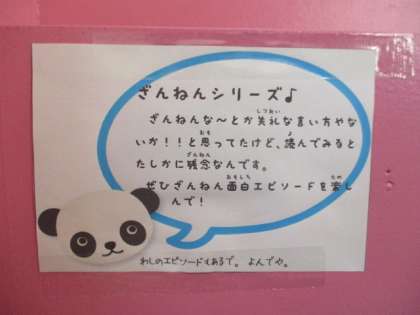 ざんねんシリーズ♪
ざんねんな〜とか失礼な言い方やな
いか！！と思ってたけど、読んでみると
たしかに残念なんです。
ぜひざんねん面白エピソードを楽し
んで！
わしのエピソードもあるで。よんでや。